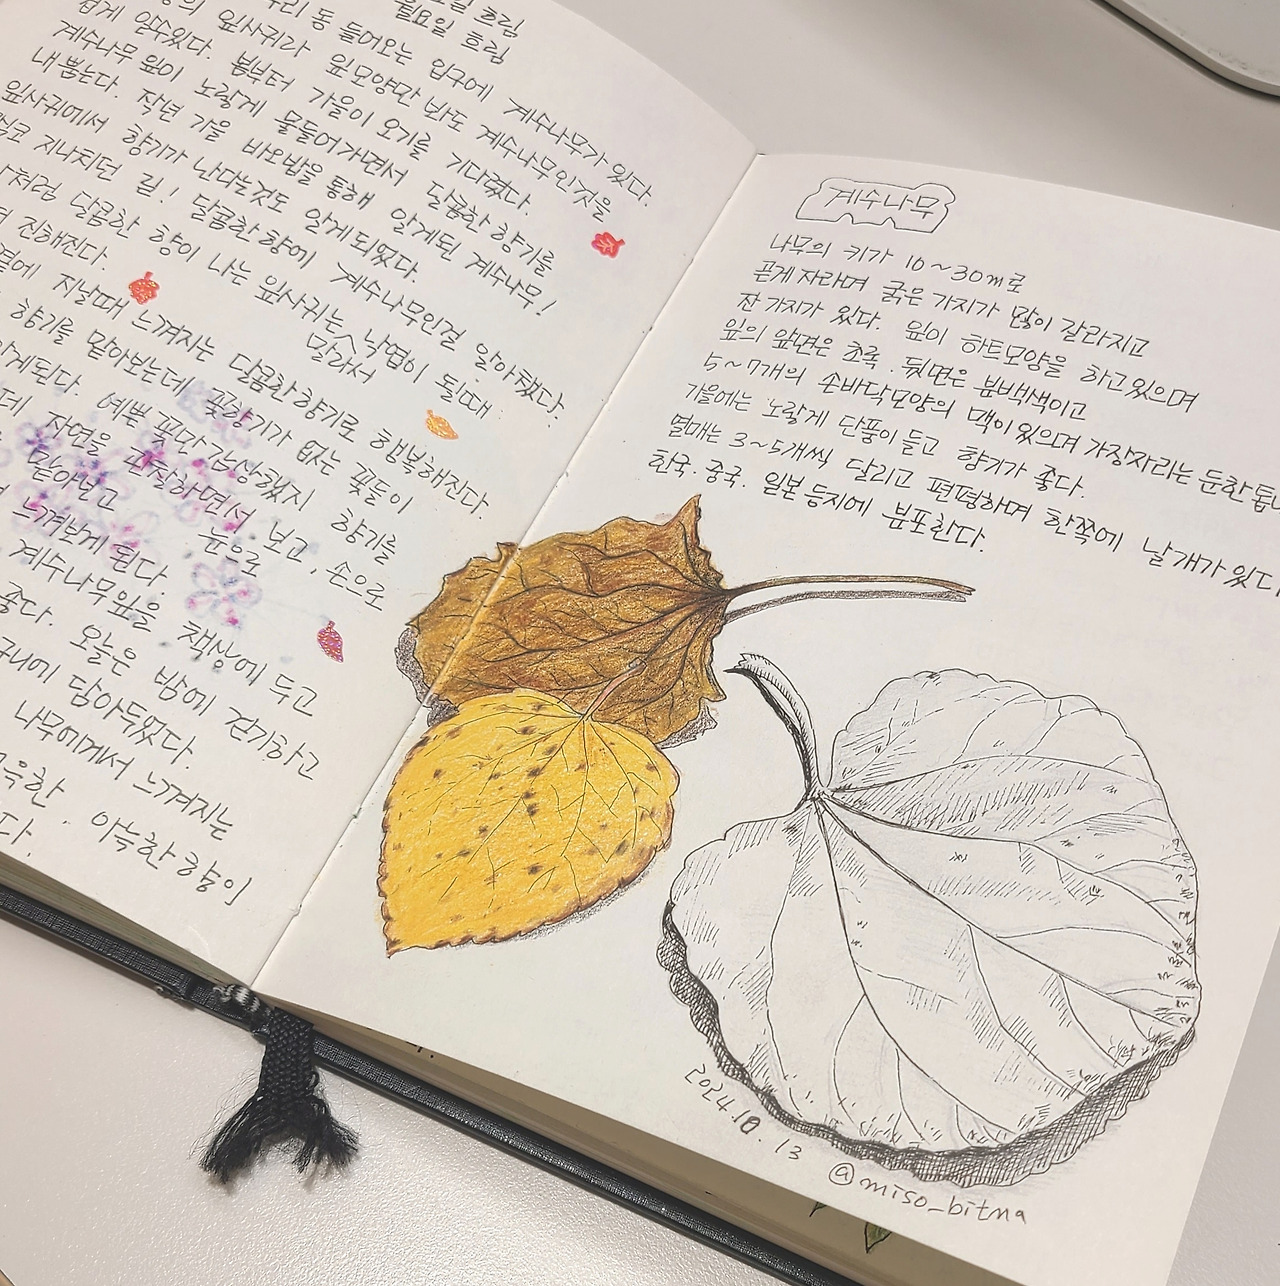 일요일 흐림
월요일 흐림
우리 동 들어오는 입구에 계수나무가 있다.
잎사귀라 잎모양만 봐도 계수나무인것을
쉽게 알수있다. 봄부터 가을이 오기를 기다렸다.
계수나무 잎이 노랗게 물들어가면서 달콤한 향기를
내뿜는다. 작년 가을 비오밥을 통해 알게된 계수나무!
잎사귀에서 향기가 난다는것도 알게되었다.
지나치던 길! 달콤한 향에 계수나무인걸 알아챘다.
처럼 달콤한 향이 나는 잎사귀는 낙엽이 될때
말라서
진해진다.
곁에 지날때 느껴지는 달콤한 향기로 행복해진다.
향기를 맡아보는데 꽃향기가 없는 꽃들이
알게된다. 예쁜 꽃만 감상했지 향기를
데 자연을 관찰하면서 눈으로 보고, 손으로
맡아보고
느껴보게 된다.
계수나무잎을 책상에 두고
좋다. 오늘은 밤에 걷기하고
담아두었다.
나무에게서 느껴지는
아늑한 향이
다.
계수나무
나무의 키가 10~30m로
곧게 자라며 굵은 가지가 많이 갈라지고
잔 가지가 있다. 잎이 하트모양을 하고있으며
잎의 앞면은 초록. 뒷면은 분백색이고
5~7개의 손바닥모양의 맥이 있으며 가장자리는 둔한 톱니
가을에는 노랗게 단풍이 들고 향기가 좋다.
열매는 3~5개씩 달리고 편평하며 한쪽에 날개가 있다.
한국. 중국. 일본 등지에 분포한다.
2024.10. 13
@miso_bitna